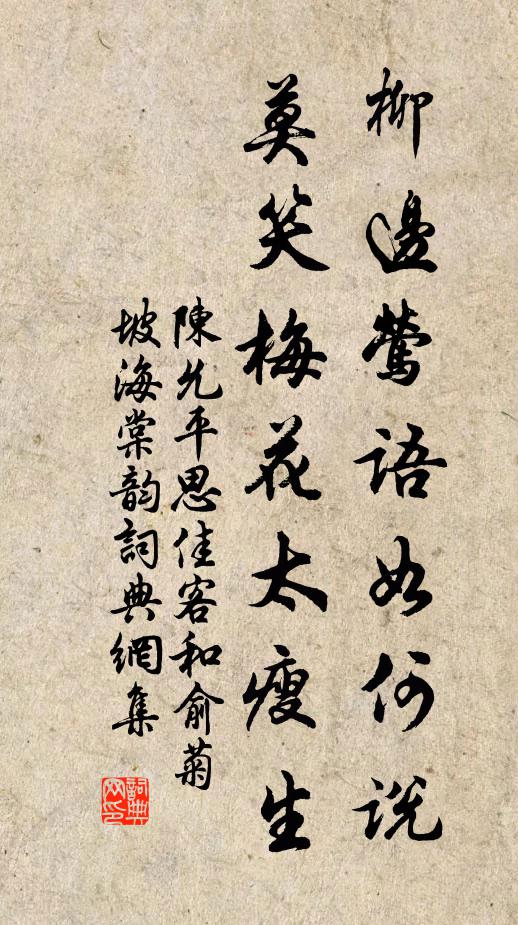 柳邊鶯語如何說
莫笑梅花太瘦生
陳允平思佳客和俞菊
坡海棠韵詞典網集
詞典
网印